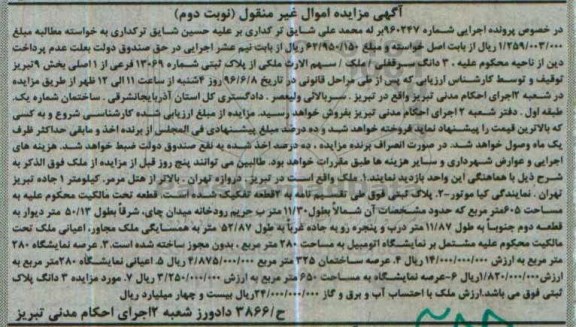 آگهی مزایده اموال غیر منقول (نوبت دوم)
در خصوص پرونده اجرایی شماره ۹۶۰۲۴۷بر له محمد علی شایق ترکداری بر علیه حسین شایق ترکداری به خواسته مطالبه مبلغ
۱/۲۵۹/۰۰۳/۰۰۰ ریال از بابت اصل خواسته و مبلغ ۶۲/۹۵۰/۱۵۰ ریال از بابت نیم عشر اجرایی در حق صندوق دولت بعلت عدم پرداخت
دین از ناحیه محکوم علیه ، ۳ دانگ سرقفلی / ملک / سهم الارث ملکی از پلاک ثبتی شماره ۱۳۰۶۹ فرعی از ۱اصلی بخش ۹تبریز
توقیف و توسط کارشناس ارزیابی که پس از طی مراحل قانونی در تاریخ ۹۶/۶/۸ روز ۴شنبه از ساعت ۱۱ الی ۱۲ ظهر از طریق مزایده
در شعبه ۲اجرای احکام مدنی تبریز واقع در تبریز . سربالائی ولیعصر . دادگستری کل استان آذربایجانشرقی . ساختمان شماره یک.
طبقه اول . دفتر شعبه ۲ اجرای احکام مدنی تبریز بفروش خواهد رسید. مزایده از مبلغ ارزیابی شده کارشناسی شروع و به کسی
که بالاترین قیمت را پیشنهاد نماید فروخته خواهد شد و ده درصد مبلغ پیشنهادی فی المجلس از برنده اخذ و مابقی حداکثر ظرف
یک ماه وصول خواهد شد. در صورت انصراف برنده مزایده ، ده درصد اخذ شده به نفع صندوق دولت ضبط خواهد شد. هزینه های
اجرایی و عوارض شهرداری و سایر هزینه ها طبق مقررات خواهد بود. طالبین می توانند پنج روز قبل از مزایده از ملک فوق الذکر به
شرح ذیل با هماهنگی این واحد بازدید نمایند.۱. ملک واقع است در تبریز . دروازه تهران . بالاتر از هتل مرمر. کیلومتر ۱ جاده تبریز
تهران . نمایندگی کیا موتور-۲. پلاک ثبتی فوق طی ۲قطعه تفکیک شده است. قطعه تحت مالکیت محکوم علیه به
مساحت ۶۰۵متر مربع که حدود مشخصات آن شمالاً بطول ۱۱/۳۰ متر ب حریم رودخانه میدان چای، شرقاً بطول ۵۰/۱۳ متر دیوار به
قطعه دوم جنوباً به طول ۱۱/۸۷ متر درب و پنجره رو به جاده غرباً به طول ۵۲/۸۷ متر به همسایگی ملک مجاور، اعیانی ملک تحت
مالکیت محکوم علیه مشتمل بر نمایشگاه اتومبیل به مساحت ۲۸۰ متر مربع . بدون مجوز ساخته شده است.۳. عرصه نمایشگاه ۲۸۰
متر مربع به ارزش ۱۴/۰۰۰/۰۰۰/۰۰۰ ریال ۴. عرصه ساختمان ۳۲۵ متر مربع ۴/۸۷۵/۰۰۰/۰۰۰ ریال ۵. اعیانی نمایشگاه ۲۸۰متر مربع به
ارزش۱/۸۲۰/۰۰۰/۰۰۰ریال ۶-عرصه نمایشگاه به مساحت ۶۵۰ متر مربع به ارزش ۳/۲۵۰/۰۰۰/۰۰۰ ریال ۷. مورد مزایده ۳ دانگ پلاک
ثبتی فوق می باشد.ارزش ملک با احتساب آب و برق و گاز ۲۴/۰۰۰/۰۰۰/۰۰۰ریال بیست و چهار میلیارد ریال
ح/۳۸۶۶ دادورز شعبه ۲اجرای احکام مدنی تبریز